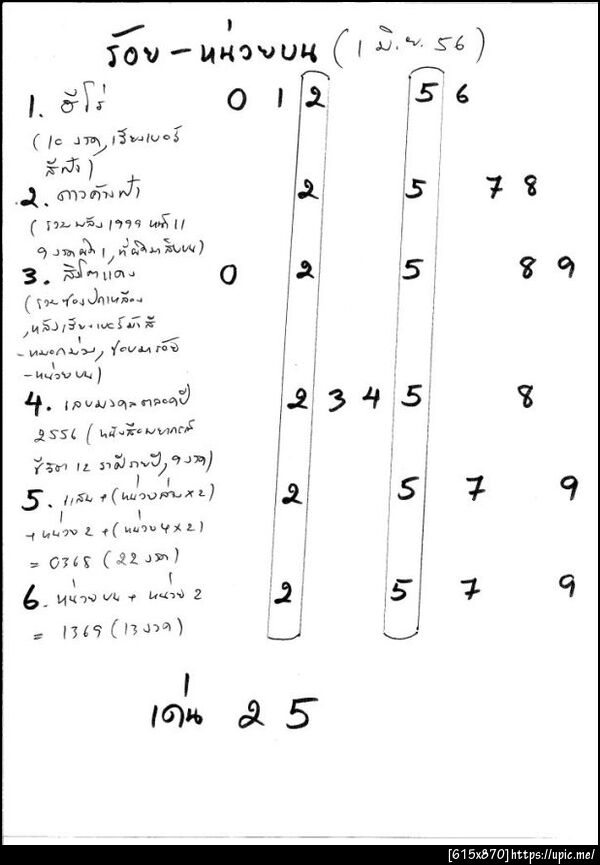 ร้อย - หน่วยบน (1 มิ.ย. 56)
1. ฮีโร่ 0 1 2 5 6
(10 งวด, เรียงเบอร์
สีฟ้า)
2. ดาวค้างฟ้า 2 5 7 8
(รวมพลัง 1999 หน้า 11
9 งวดผิด 1, ที่ผิดมาสิบบน)
3. สิงโตแดง 0 2 5 8 9
(รวยซองปกเหลือง
, หลังเรียงเบอร์ม้าสี
-หมอกม่วง, ชอบมาร้อย
-หน่วยบน)
4. เลขมงคลตลอดปี 2 3 4 5 8
2556 (หนังสือพยากรณ์
ชีวิต 12 ราศีรายปี, 9 งวด)
5. แสน + (หน่วยล่าง x 2) 2 5 7 9
+ หน่วย 2 + (หน่วย 4 x 2)
= 0368 (22 งวด)
6. หน่วยบน + หน่วย 2 2 5 7 9
= 1369 (13 งวด)
เด่น 2 5
[615x870]https://upic.me/